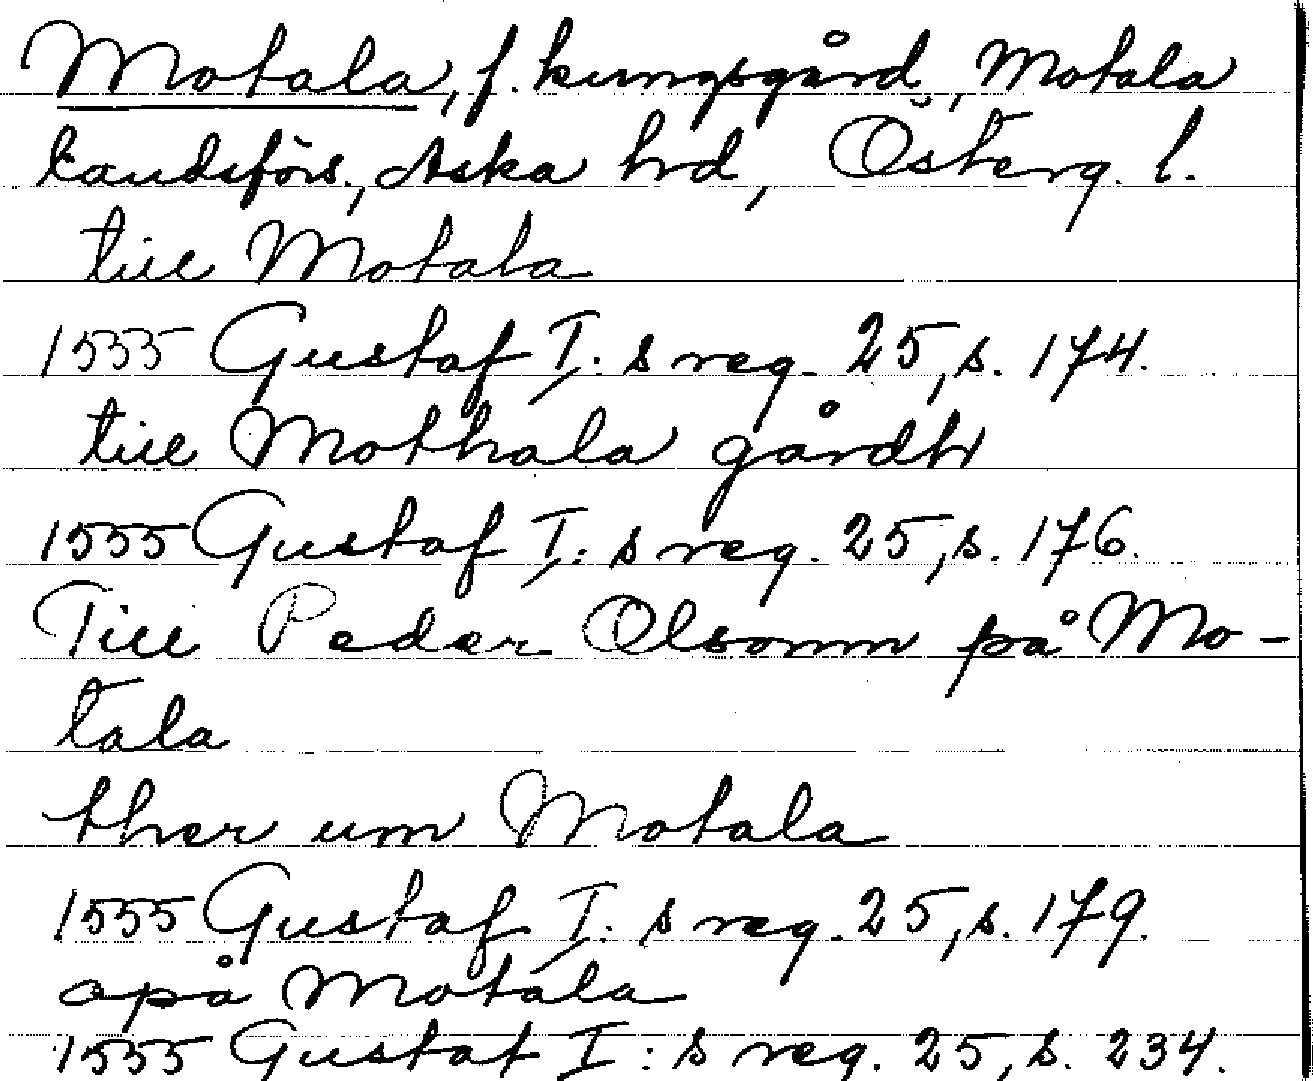 Motala, f. kungsgård, Motala
landsförs., Aska hrd, Österg. l.
till Motala
1555 Gustaf I:s reg. 25, s. 174.
till Mothala gårdh
1555 Gustaf I:s reg. 25, s. 176.
Till Peder Olsonn på Mo-
tala
ther um Motala
1555 Gustaf I:s reg. 25, s. 179.
opå Motala
1555 Gustaf I:s reg. 25, s. 234.